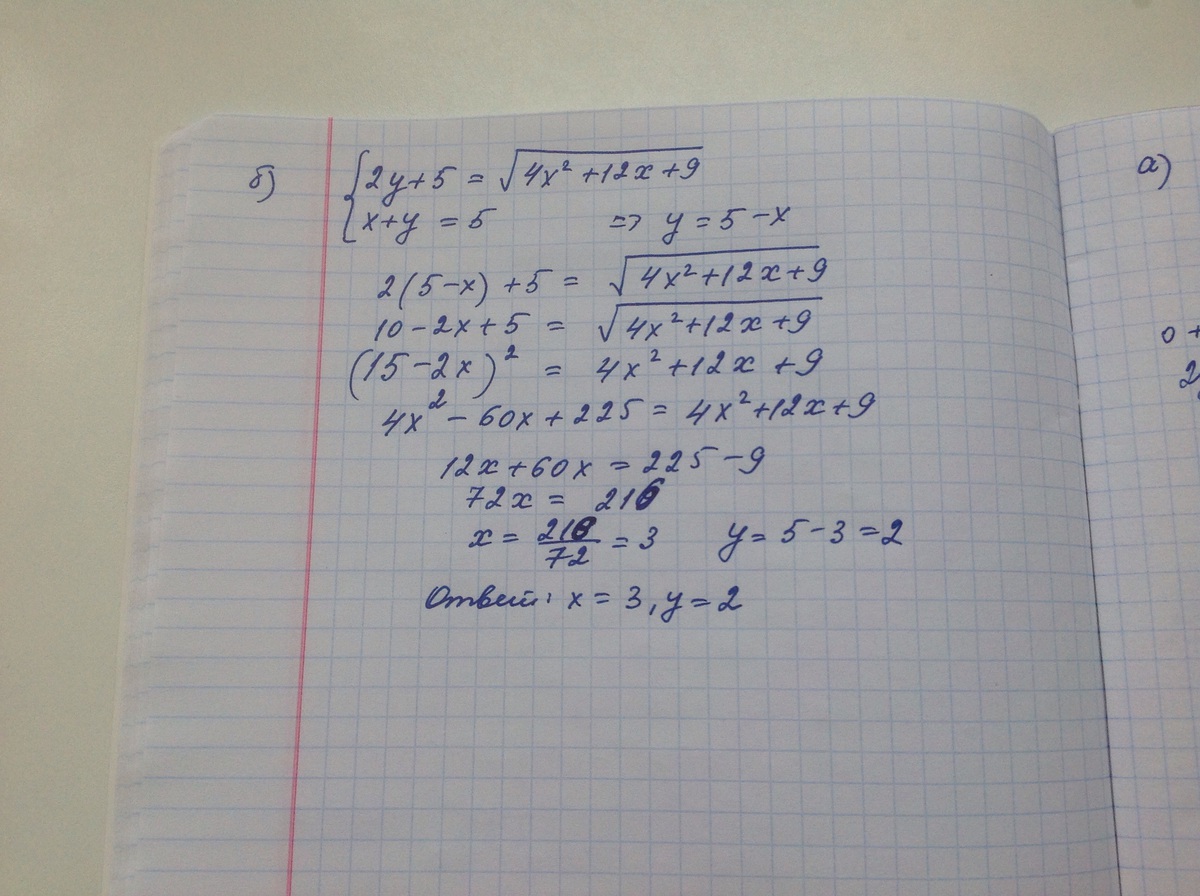 б) {2y+5 = √4x²+12x+9
{x+y = 5 => y = 5-x
2(5-x)+5 = √4x²+12x+9
10-2x+5 = √4x²+12x+9
(15-2x)² = 4x²+12x+9
4x²-60x+225 = 4x²+12x+9
12x+60x = 225-9
72x = 216
x = 216/72 = 3 y = 5-3 = 2
Ответ: x = 3, y = 2
а)
0+